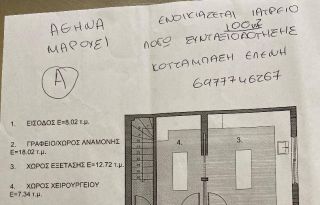 ΑΘΗΝΑ
ΜΑΡΟΥΣΙ
Α
ΕΝΟΙΚΙΑΖΕΤΑΙ ΙΑΤΡΕΙΟ
100m²
ΛΟΓΩ ΣΥΝΤΑΞΙΟΔΟΤΗΣΗΣ
ΚΟΤΣΑΜΠΑΣΗ ΕΛΕΝΗ
6977746267
1. ΕΙΣΟΔΟΣ Ε=8.02 τ.μ.
2. ΓΡΑΦΕΙΟ/ΧΩΡΟΣ ΑΝΑΜΟΝΗΣ
Ε=18.02 τ.μ.
3. ΧΩΡΟΣ ΕΞΕΤΑΣΗΣ Ε=12.72 τ.μ.
4. ΧΩΡΟΣ ΧΕΙΡΟΥΡΓΕΙΟΥ
Ε=7.34 τ.μ.
4.
3.